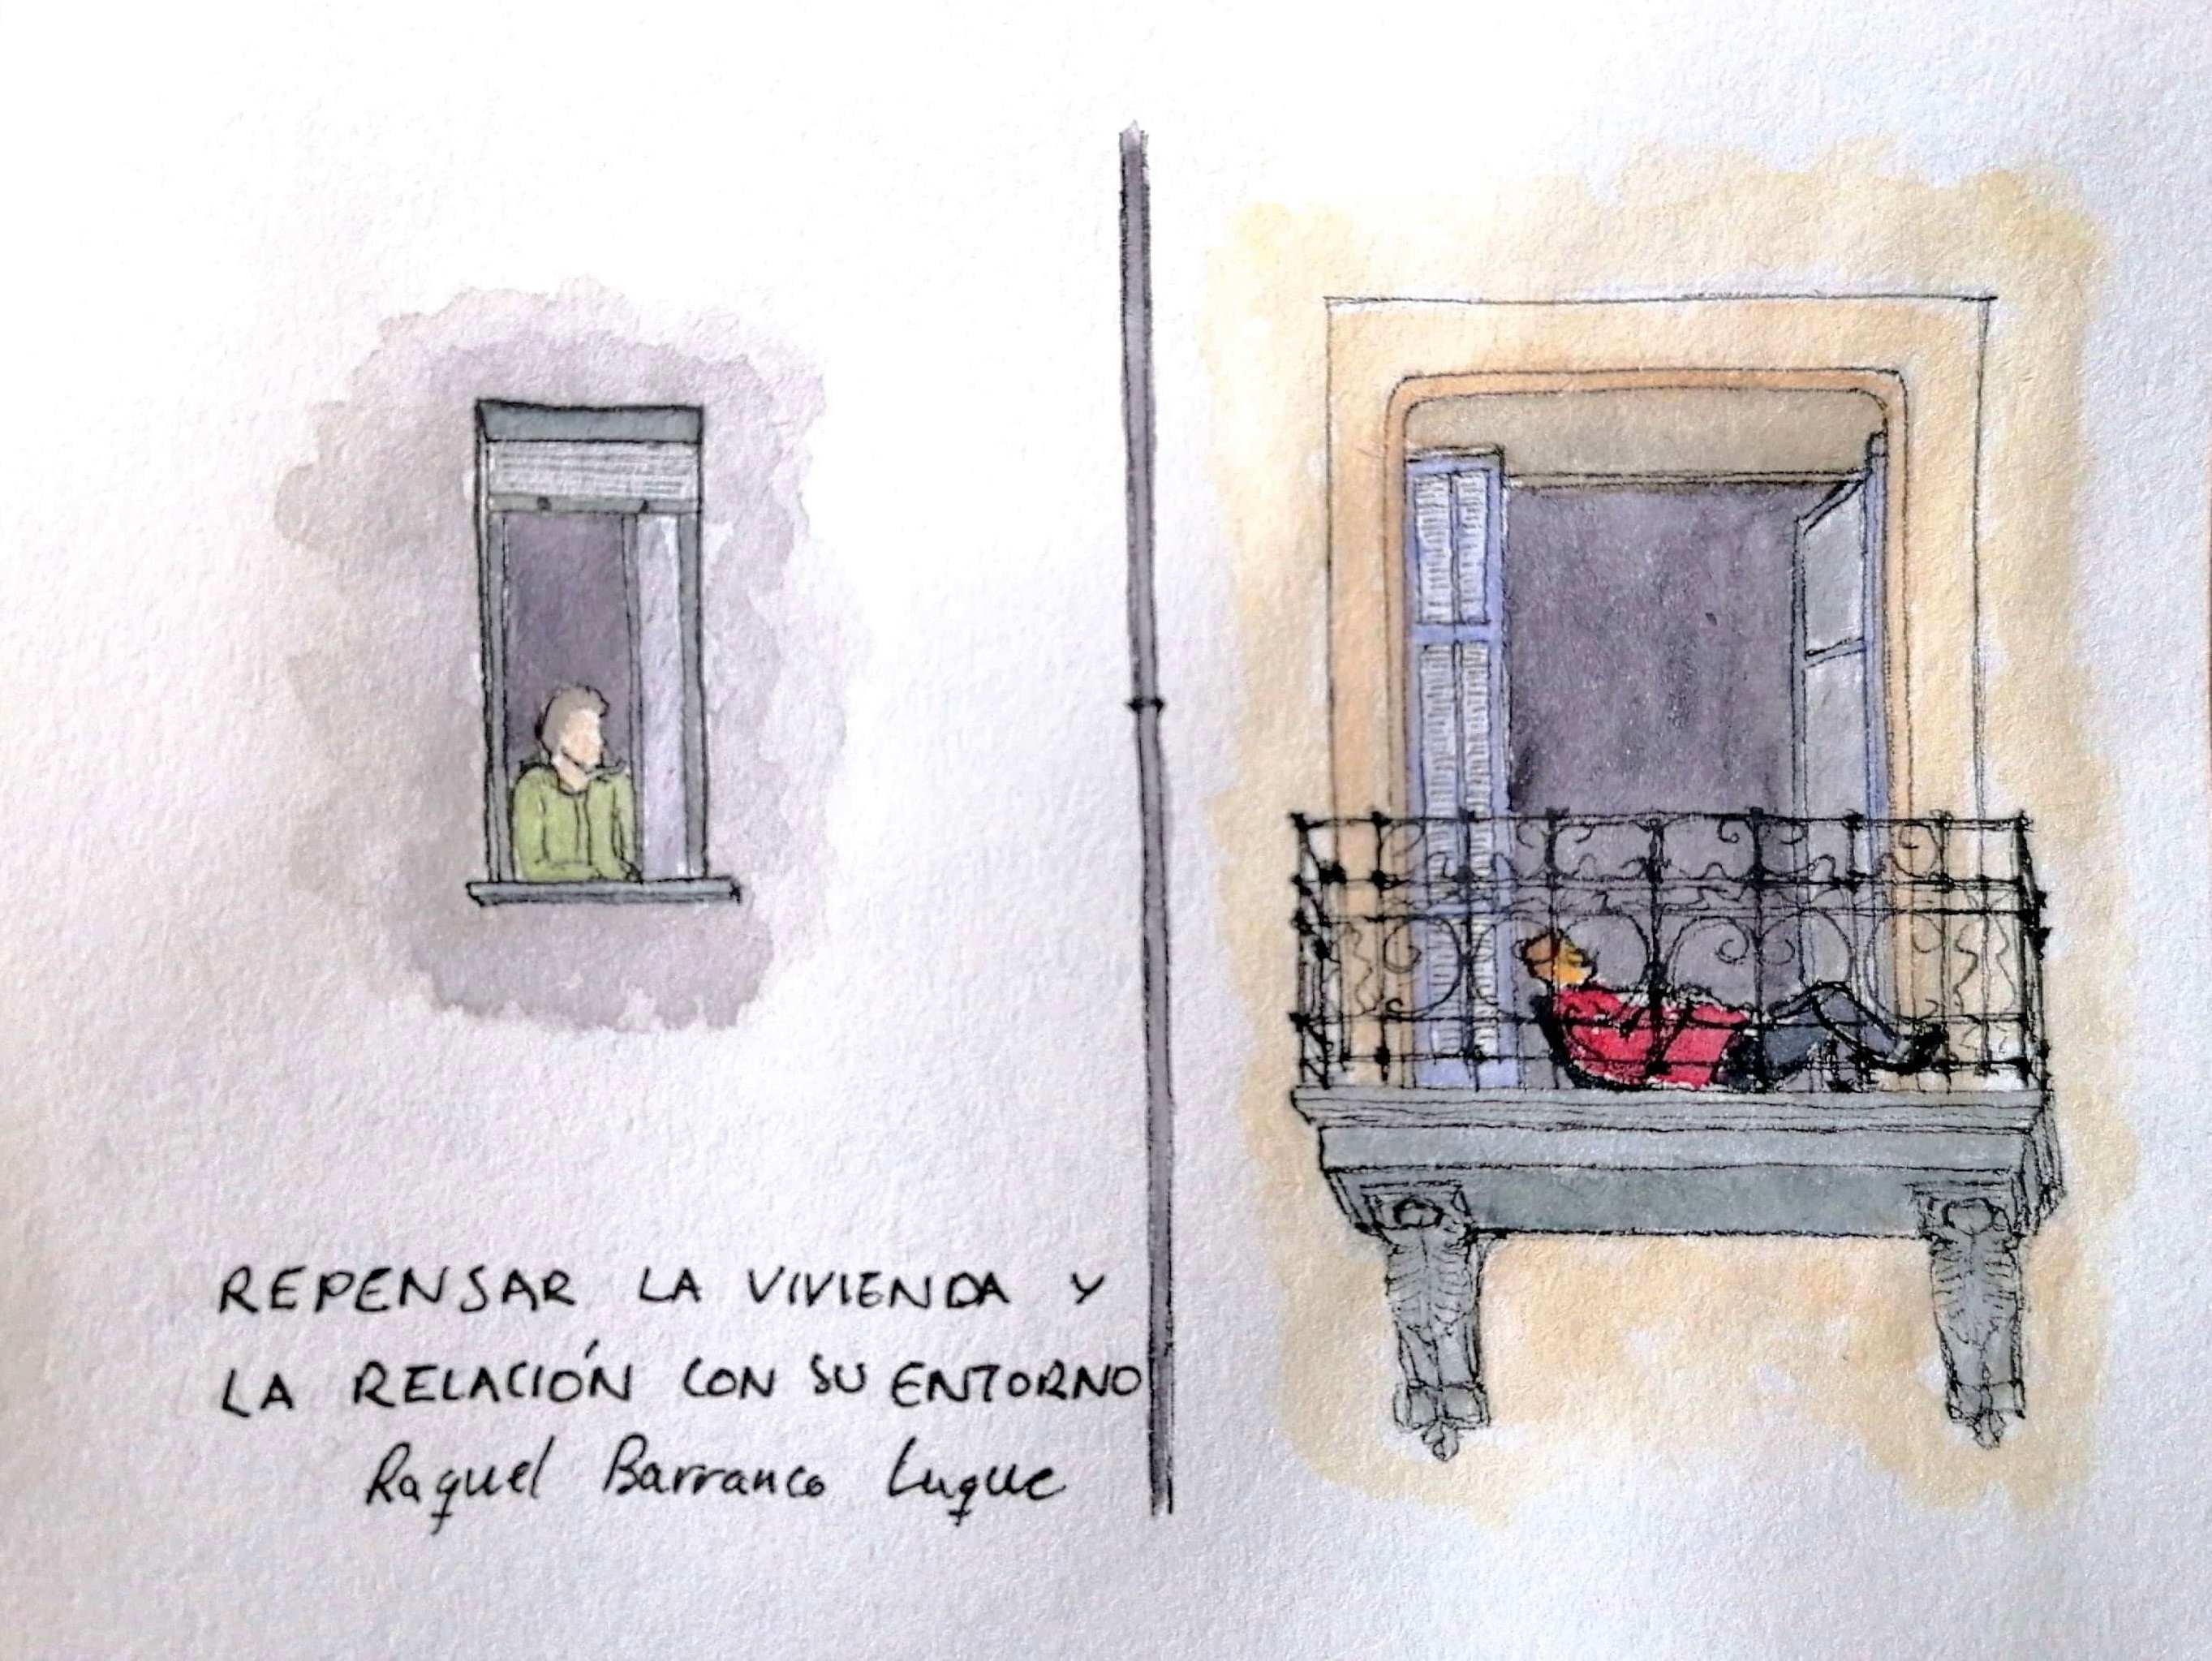 REPENSAR LA VIVIENDA Y
LA RELACIÓN CON SU ENTORNO
Raquel Barranco Luque